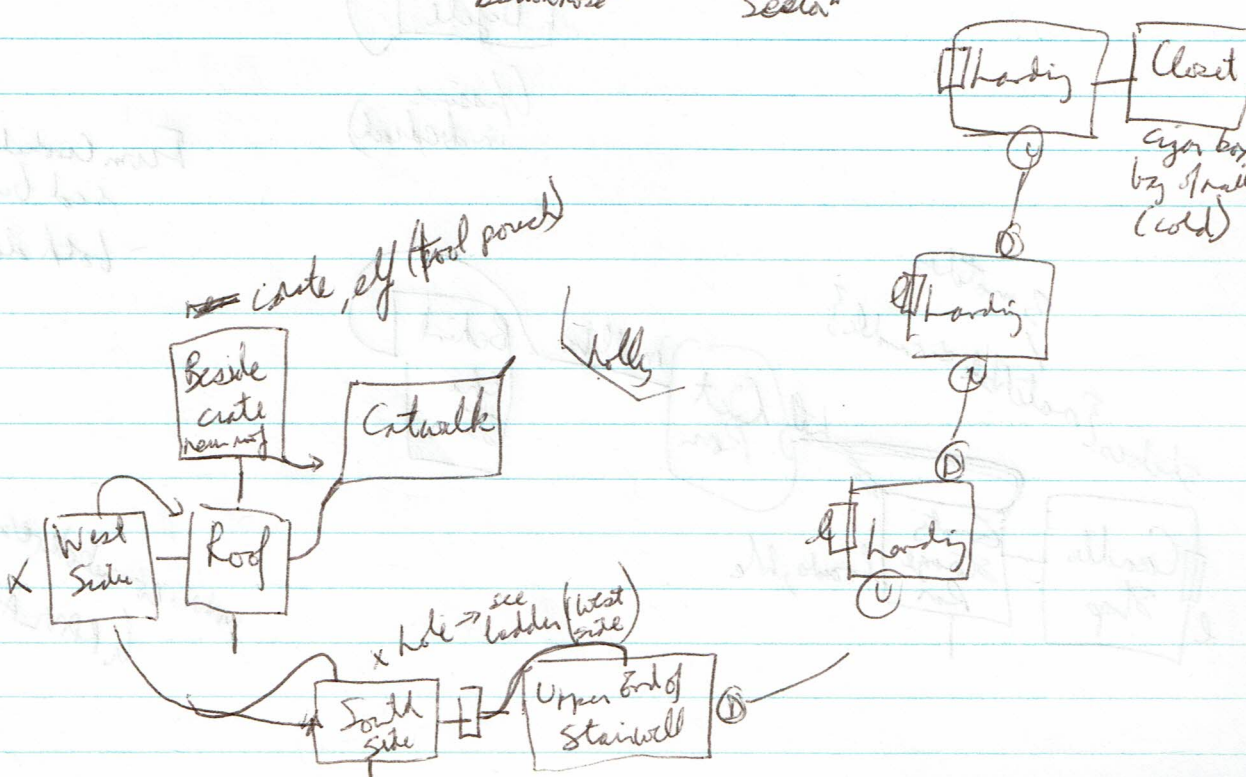 Landing
Closet
cigar box
bag of
(cold)
U
D
Landing
D
Landing
U
crate, elf (tool pouch)
Holly
Beside
crate
near roof
Catwalk
West
Side
X
Roof
x hole → see
ladder (West
side)
South
side
Upper End of
Stairwell
D